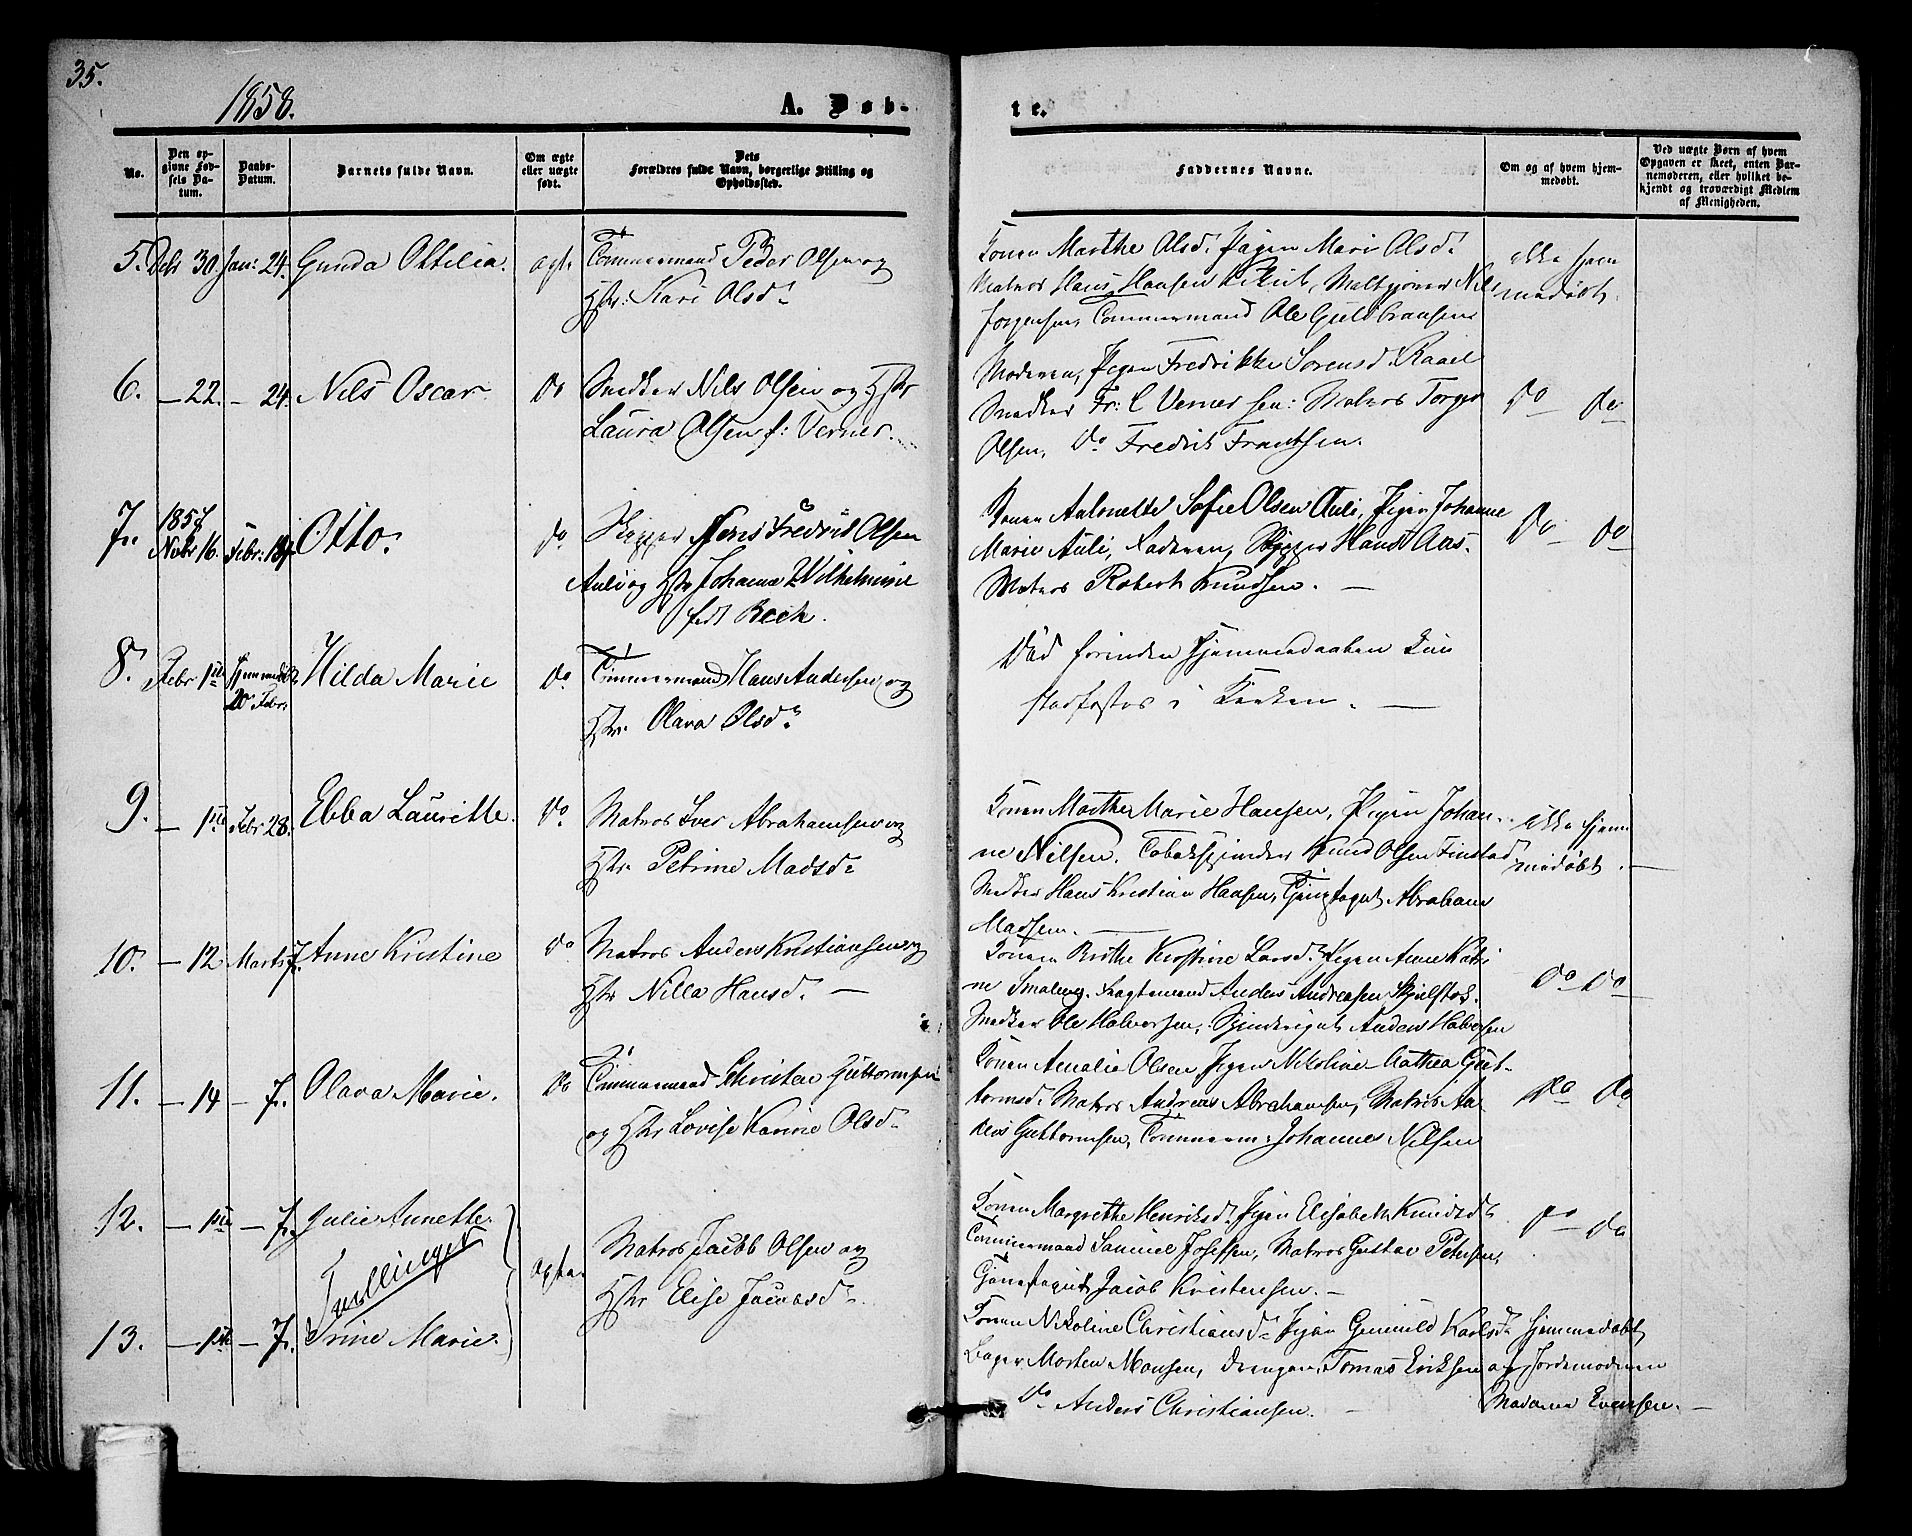 35.
1858.
A. Døb-
te.
No.
Den op-
givne Fød-
sels Da-
tum.
Daabs-
Datum.
Barnets fulde Navn.
Om ægte
eller uægte
født.
Dets
Forældres fulde Navn, borgerlige Stilling og
Opholdssted.
Faddernes Navne.
Om og af hvem hjem-
medøbt.
Ved uægte Børn af hvem
Opgaven er skeet, enten Bar-
nemoderen, eller hvilket be-
kjendt og troværdigt Medlem
af Menigheden.
5. Debr 30. Jan: 24. Gunda Ottilia. ægt.
Tømmermand Peder Olsen og
Hstr: Kari Olsd.
Konen Marthe Olsd. Pigen Mari Olsd.
Matros Hans Hansen
Jørgensen, Tømmermand Ole Guldbransen
ikke hjem
medøbt.
6. — 22. — 24. Nils Oscar. Do
Snedker Nils Olsen og Hstr
Laura Olsen f: Verner.
Moderen, Pigen Fredrikke Sørensd.
Snedker Fr: C Verner sen: Matros Torger
Olsen, Do Fredrik Frantsen.
Do Do
7. 1857
Nvbr 16. Febr: Otto. do.
Skipper Jens Fredrik Olsen
Auli og Hstr Johanne Wilhelmine
født Bech.
Konen Antonette Sofie Olsen Auli, Pigen Johanne
Marie Auli, Faderen, Skipper Hans Aas.
Matros Robert Knudsen. —
Do Do
8. Febr 1ste Hjemmedøbt
20 Febr. Hilda Marie Do.
Tømmermand Hans Andersen og
Hstr. Olava Olsd.
Død forinden Hjemmedaaben kun
stadfæstes i Kirken. —
9. — 1ste Febr 28. Ebba Lauritte. Do.
Matros Iver Abrahamsen og
Hstr Petrine Madsd.
Konen Marthe Marie Hansen, Pigen Johan-
ne Nilsen. Tobakspinder Knud Olsen Finstad
Snedker Hans Kristian Hansen, Abraham
Madsen. —
ikke hjem
medøbt. —
10. — 12 Marts 7. Anne Kristine Do
Matros Anders Kristiansen og
Hstr Nilla Hansd. —
Konen Birthe Kirstine Larsd. Pigen Anne Katri
ne Fragtemand Anders Andreasen
Snedker Ole Halvorsen, Anders Halvorsen
Do Do
11. — 14 — 7. Olava Marie. Do
Tømmermand Christen Guttormsen
og Hstr Lovise Karine Olsd.
Konen Amalie Olsen Pigen Nikoline Mathea Gut-
tormsd. Matros Andreas Abrahamsen, Matros
Guttormsen, Tømmerm: Johannes Nilsen
Do Do
12. — 1ste — 7. Julie Annette.
Tvillinger
ægte.
Matros Jacob Olsen og
Hstr Elise Jacobsd.
Konen Margrethe Henriksd. Pigen Elisabeth Knudsd.
Tømmermand Samuel Josefsen, Matros Gustav Petersen,
Jacob Kristensen. —
Do Do
13. — 1ste — 7. Trine Marie.
Konen Nikoline Christiansd. Pigen Gunnild Karlsd.
Bager Morten Monsen, Drengen Tomas Eriksen
Do Anders Christiansen. —
Hjemmedøbt
af Jordemoderen
Madame Evensen. —